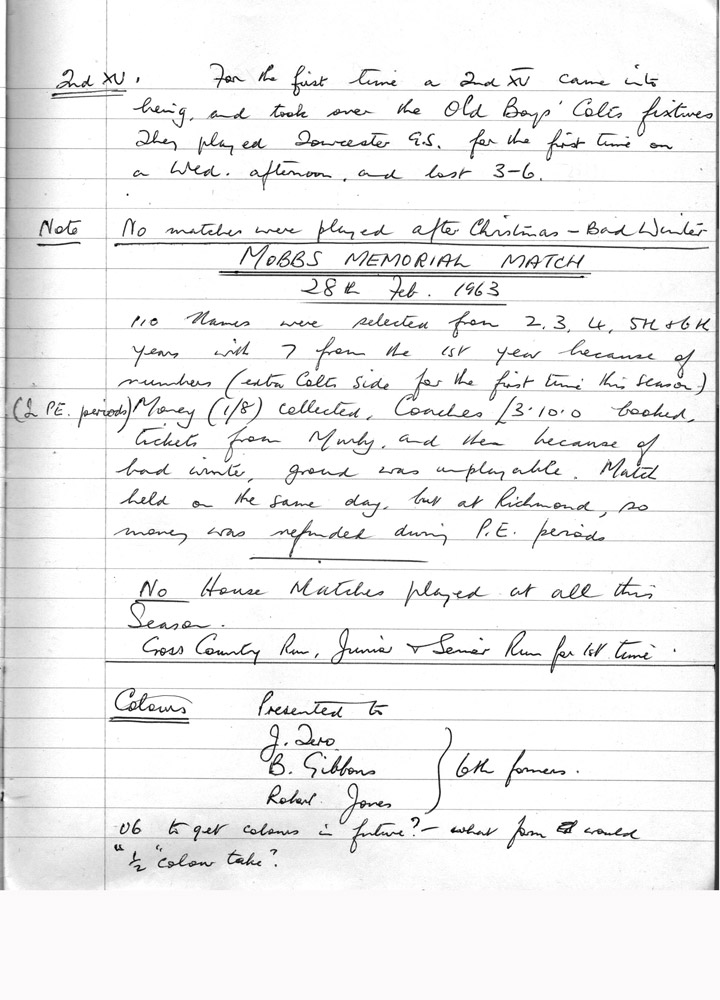 2nd XV. For the first time a 2nd XV came into
being, and took over the Old Boys' Colts fixtures
They played Towcester G.S. for the first time on
a Wed. afternoon, and lost 3-6.
Note No matches were played after Christmas - Bad Winter
MOBBS MEMORIAL MATCH
28th Feb. 1963
110 Names were selected from 2, 3, 4, 5th & 6th
years with 7 from the 1st year because of
numbers (extra Colts side for the first time this season)
(2 P.E. periods) Money (1/8) collected, Coaches £3.10.0 booked,
tickets from Murby, and then because of
bad winter, ground was unplayable. Match
held on the same day, but at Richmond, so
money was refunded during P.E. periods
No House Matches played at all this
Season.
Cross Country Run, Junior & Senior Run for 1st time.
Colours Presented to
J.
B. Gibbons
Robert Jones
6th formers.
U6 to get colours in future? - what form would
"½" colour take?